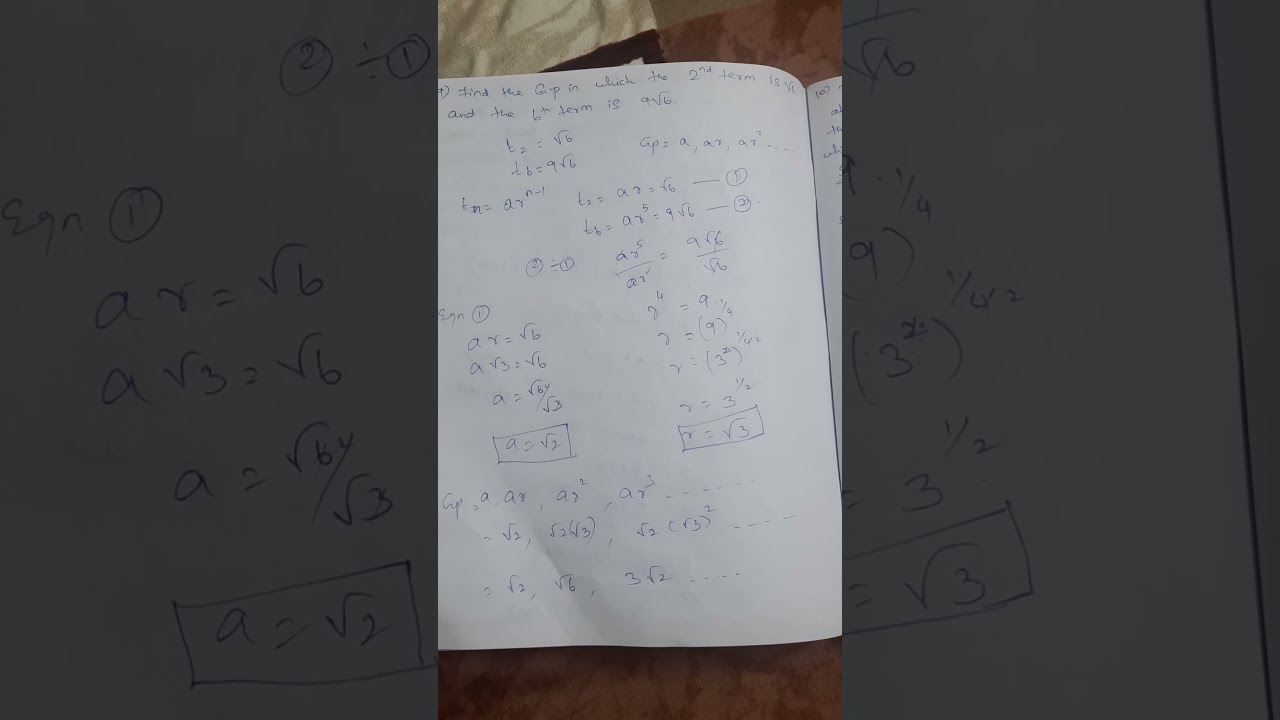 9) Find the G.p in which the 2nd term is √6
and the 6th term is 9√6.
t₂ = √6
t₆ = 9√6
Gp = a, ar, ar² ....
tₙ = arⁿ⁻¹
t₂ = ar = √6 — ①
t₆ = ar⁵ = 9√6 — ②.
② ÷ ① ar⁵/ar¹ = 9√6/√6
r⁴ = 9
r = (9)^1/4
r = (3²)^1/4×2
r = 3^1/2
r = √3
Eqn ①
ar = √6
a√3 = √6
a = √6/√3
a = √2
Gp = a, ar, ar², ar³ .......
= √2, √2(√3), √2(√3)² ....
= √2, √6, 3√2 ......